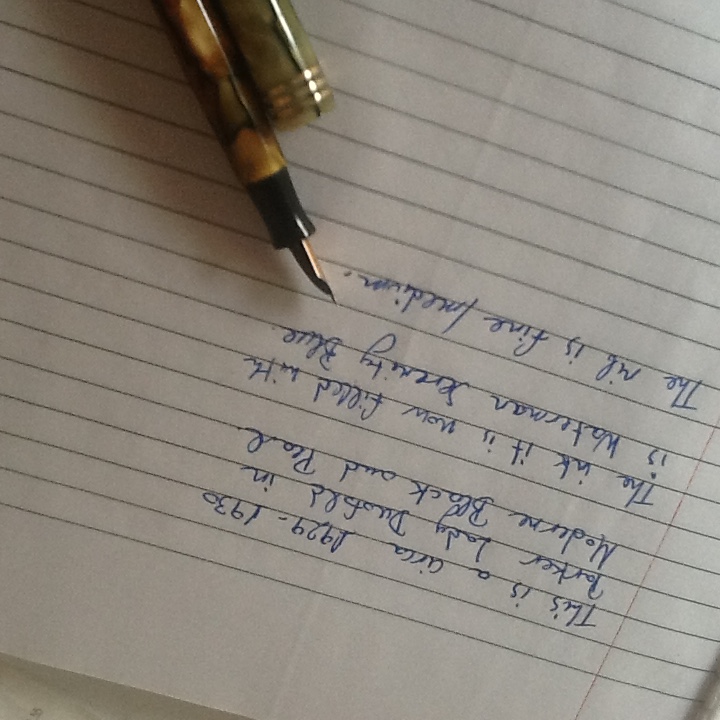 This is a circa 1929-1930
Parker Lady Duofold in
Moderne Black and Pearl
The ink it is now filled with
is Waterman Serenity Blue.
The nib is fine/medium.